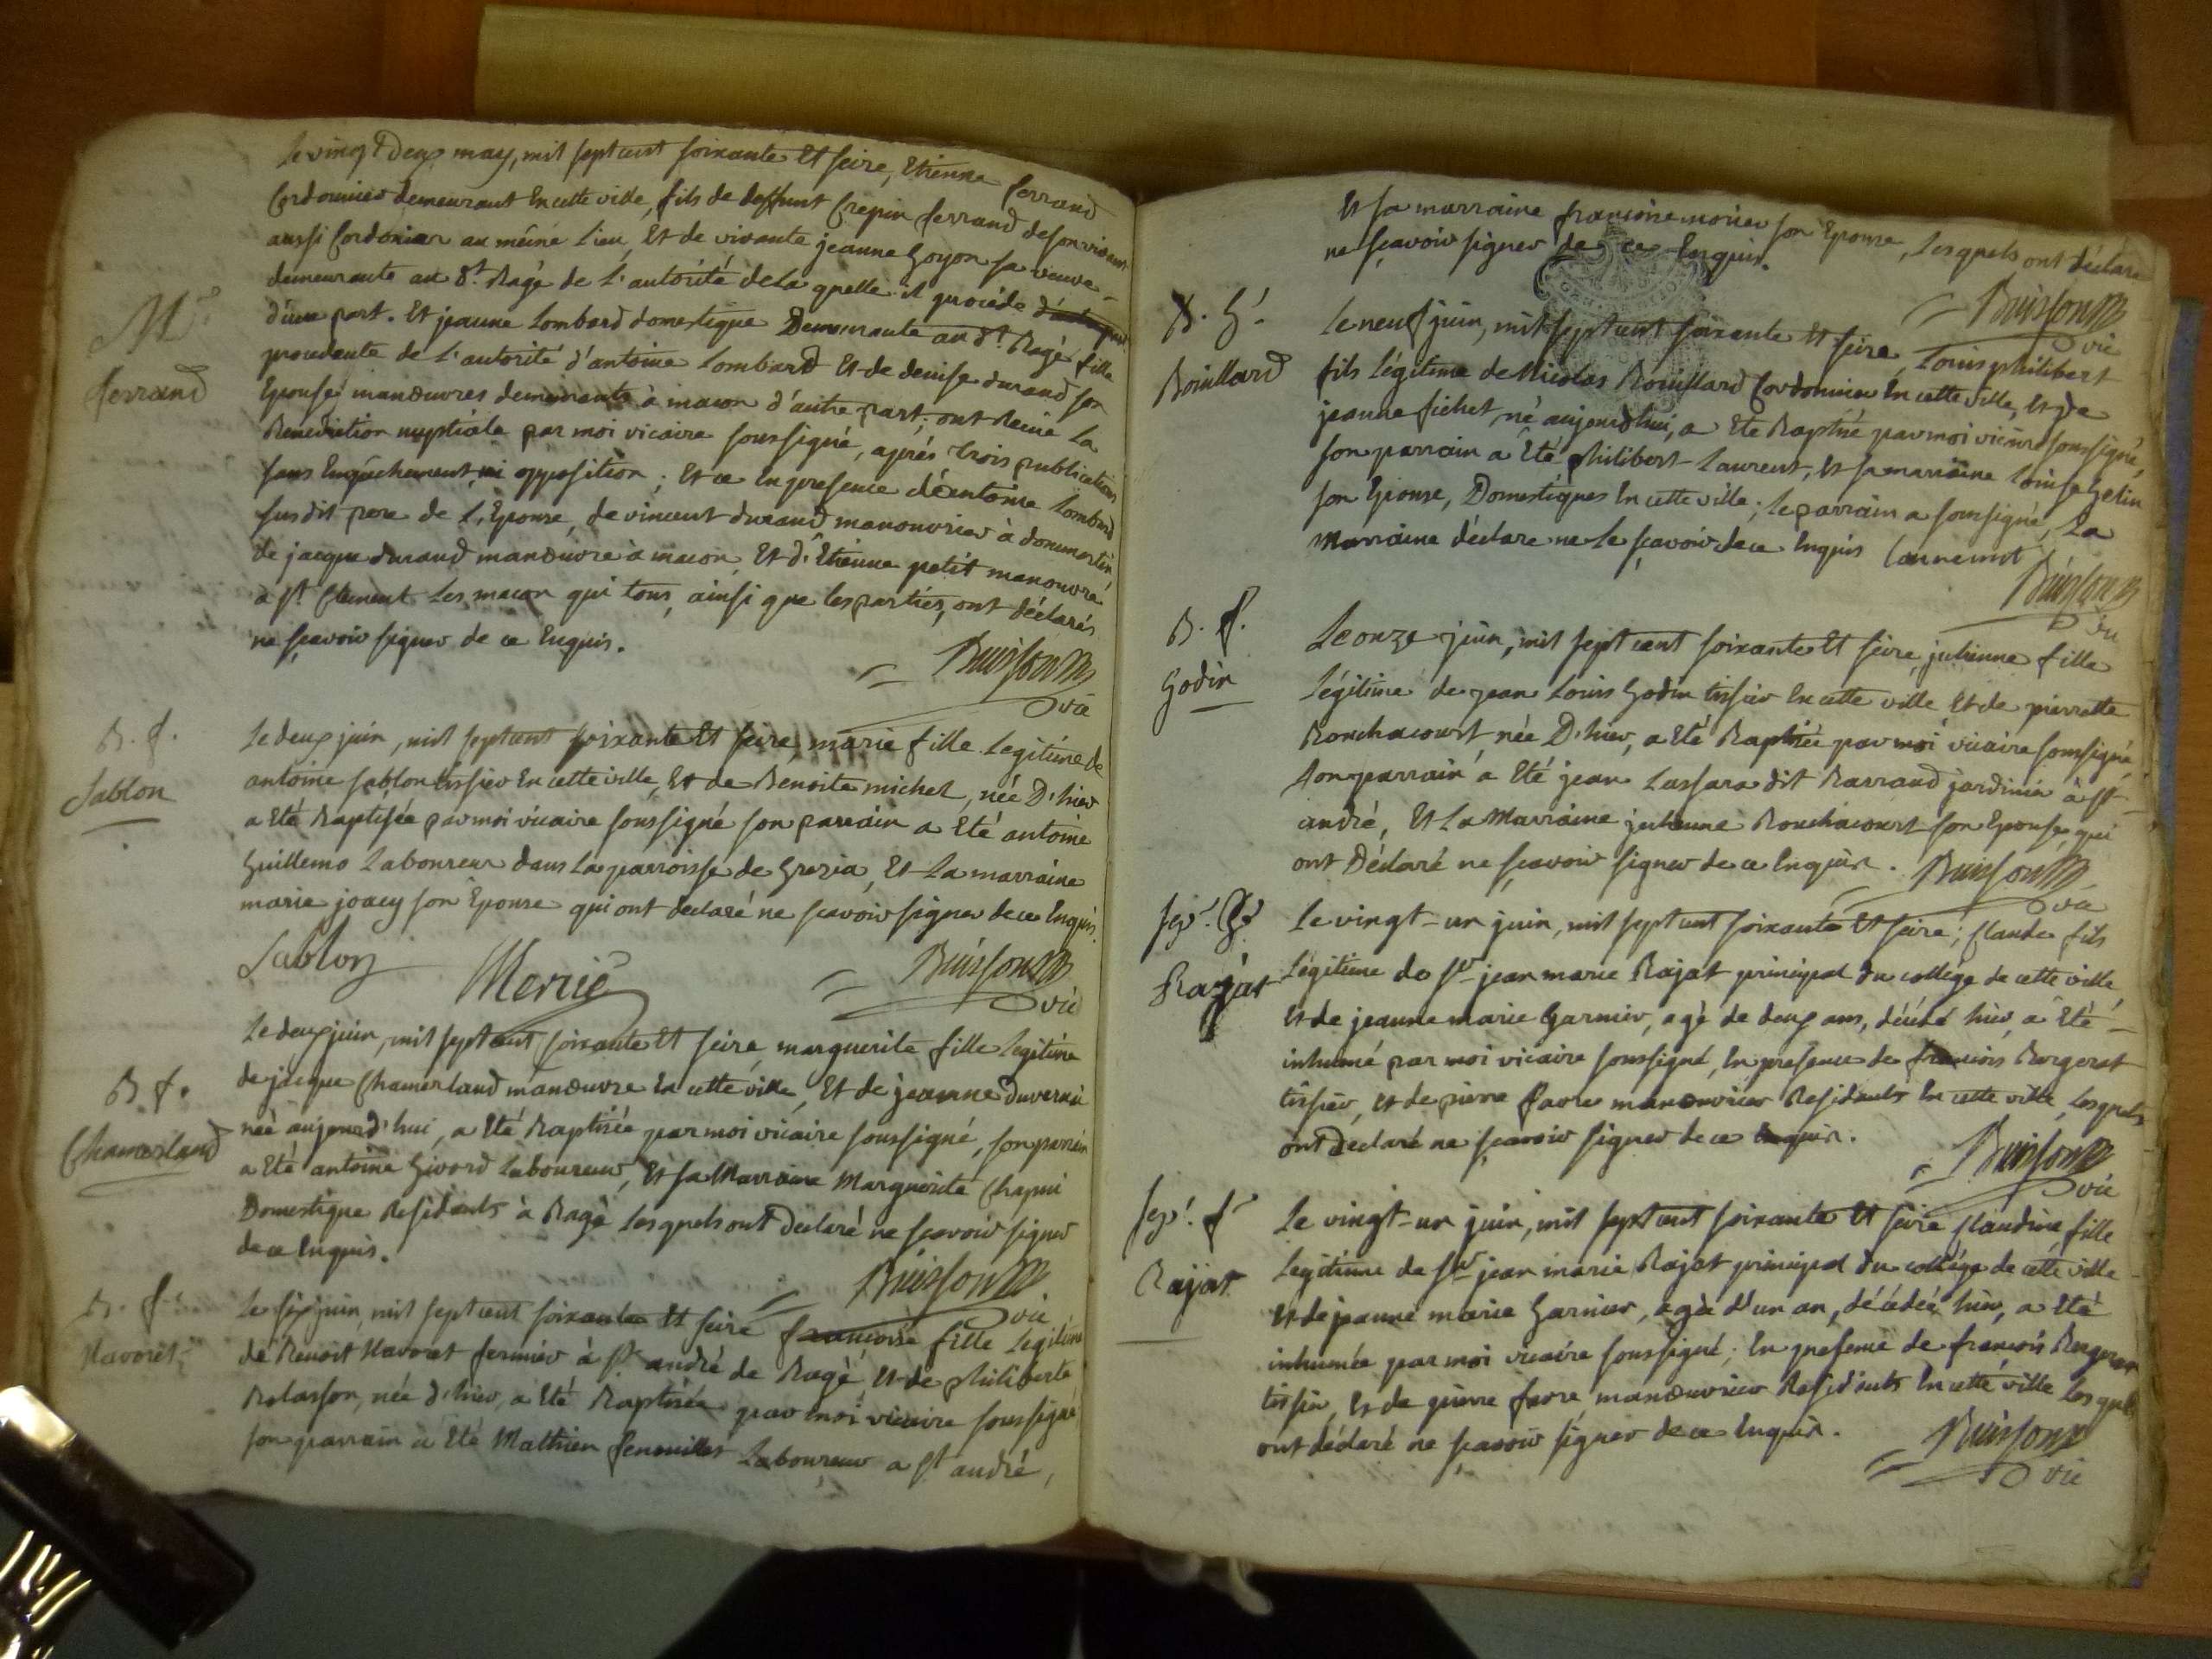 Le vingt deux may, mil sept cent soixante Et seire, Etienne ferrand
Cordonnier demeurant En cette ville, fils de deffunt Crepin ferrand de son vivant
aussi Cordonier au même lieu, Et de vivante jeanne Goyon sa veuve
demeurante au dt. Bagé de L'autorité de la quelle il procède
d'une part. Et jeanne Lombard domestique Demeurante au dt. Bagé, fille
procedente de L'autorité d'antoine Lombard Et de denise durand son
Epouse manœuvres demeurants à macon d'autre part, ont Recue La
Benediction nuptiale par moi vicaire soussigné, aprés trois publications
sans Empêchement, ni opposition; Et ce En presence d'antoine Lombard
susdit pere de L'Epouse, de vincent durand manouvrier à dommartin
de jacque durand manœuvre à macon, Et d'Etienne petit manouvre
à St. Clement Les macon qui tous, ainsi que les parties, ont déclarés
ne sçavoir signer de ce Enquis.
Buisson
vic
Mre.
ferrand
B. f.
Sablon
Le deux juin, mil sept cent soixante Et seire, marie fille Legitime de
antoine Sablon tissier En cette ville, Et de Benoite michel, née D'hier
a Eté Baptisée par moi vicaire soussigné son parrain a Eté antoine
Guillemo Laboureur dans La parroisse de Grezia, Et La marraine
marie joacy son Epouse qui ont declaré ne scavoir signer de ce Enquis.
Sablon Mercié Buisson
vic
B. f.
Chamerland
Le deux juin, mil sept cent soixante Et seire, marguerite fille Legitime
de jacque Chamerland manœuvre En cette ville, Et de jeanne duverné
née aujourd'hui, a Eté Baptisée par moi vicaire soussigné, son parrain
a Eté antoine Givord Laboureur, Et sa Marraine Marguerite Chapui
Domestique Residants à Bagé Lesquels ont declaré ne scavoir signer
de ce Enquis.
Buisson
vic
B. f.
Navoret
Le six juin, mil sept cent soixante Et seire françoise fille Legitime
de Benoit Navoret fermier à St andré de Bagé, Et de philiberte
Rolasson, née d'hier, a Eté Baptisée par moi vicaire soussigné
son parrain a Eté Mathieu fenouillet Laboureur a St andré,
Et sa marraine françoise morier son Epouse, Lesquels ont déclaré
ne sçavoir signer de ce Enquis.
Buisson
vic
B. G.
Bouillard
Le neuf juin, mil sept cent soixante Et seire, Louis philibert
fils Légitime de Nicolas Bouillard Cordonnier En cette ville, Et de
jeanne fichet, né aujourd'hui, a Eté Baptisé par moi vicaire soussigné,
son parrain a Eté philibert Laurent, Et sa marraine Louise Gelin
son Epouse, Domestiques En cette ville; Le parrain a soussigné, La
Marraine déclare ne Le sçavoir de ce Enquis
Buisson
vic
B. f.
Godin
Le onze juin, mil sept cent soixante Et seire, julienne fille
Légitime de jean Louis Godin tissier En cette ville Et de pierrette
Bonchacourt, née D'hier, a Eté Baptisée par moi vicaire soussigné,
son parrain a Eté jean Lassara dit Barraud jardinier à St
andré, Et La Marraine julienne Bonchacourt son Epouse, qui
ont Déclaré ne sçavoir signer de ce Enquis.
Buisson
vic
Sep. G.
Rajat
Le vingt-un juin, mil sept cent soixante Et seire, Claude fils
Légitime de Sr jean marie Rajat principal du collège de cette ville
Et de jeanne marie Garnier, agé de deux ans, décédé hier, a Eté
inhumé par moi vicaire soussigné, En presence de françois Bergerat
tissier, et de pierre favre manœuvrier Residants En cette ville Lesquels
ont Declaré ne sçavoir signer de ce Enquis.
Buisson
vic
Sep. f.
Rajat
Le vingt-un juin, mil sept cent soixante Et seire Claudine fille
Legitime de Sr jean marie Rajat principal du collège de cette ville
Et de jeanne marie Garnier, agée d'un an, décédée hier, a Eté
inhumée par moi vicaire soussigné; En presence de françois Bergerat
tissier, Et de pierre favre, manœuvrier Residants En cette ville Lesquels
ont déclaré ne sçavoir signer de ce Enquis.
Buisson
vic